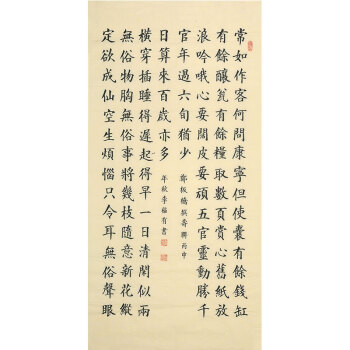 常如作客何問康寧但使囊有餘錢缸
有餘釀瓮有餘糧取數頁賞心舊紙放
浪吟哦心要闊皮要頑五官靈動勝千
官年過六旬猶少
定欲成仙空生煩惱只令耳無俗聲眼
無俗物胸無俗事將幾枝隨意新花縱
橫穿插睡得遲起得早一日清閑似兩
日算來百歲亦多
鄭板橋撰壽聯丙申
年秋季福有書